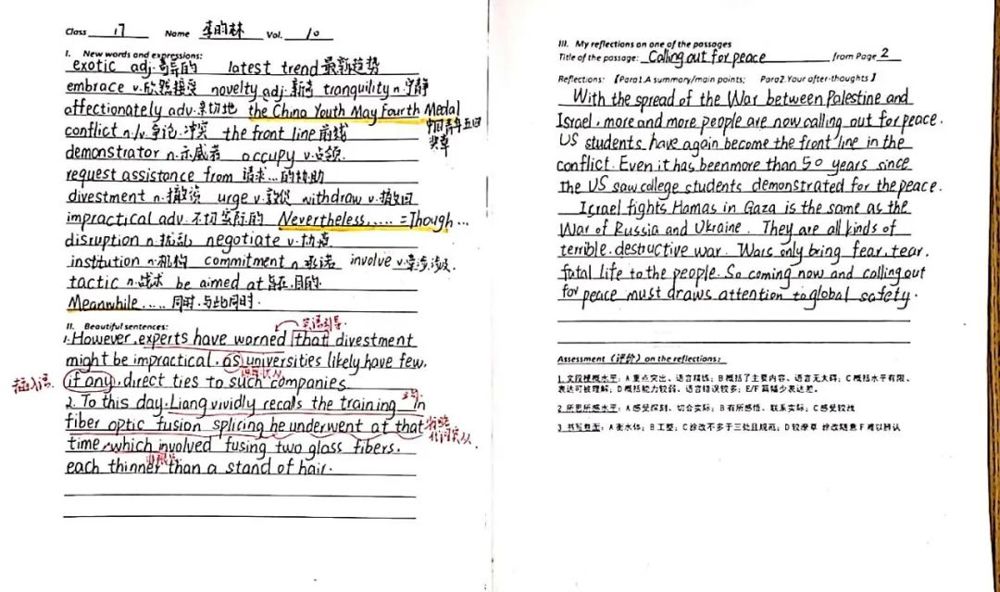 Class 17 Name 李昀林 Vol. 10
I. New words and expressions:
exotic adj.奇异的 latest trend 最新趋势
embrace v.欣然接受 novelty adj.新奇 tranquility n.宁静
affectionately adv.亲切地 the China Youth May Fourth Medal
中国青年五四
奖章
conflict n./v.争论.冲突 the front line 前线
demonstrator n.示威者 occupy v.占领
request assistance from 请求...的协助
divestment n.撤资 urge v.敦促 withdraw v.撤回
impractical adv.不切实际的 Nevertheless,.... = Though...
disruption n.扰乱 negotiate v.协商
institution n.机构 commitment n.承诺 involve v.牵涉,涉及.
tactic n.战术 be aimed at 旨在.目的.
Meanwhile..... 同时.与此同时.
II. Beautiful sentences:
1.However, experts have worned that divestment
might be impractical, as universities likely have few,
插入语
if any, direct ties to such companies
2. To this day, Liang vividly recalls the training in
fiber optic fusion splicing he underwent at that
time, which involved fusing two glass fibers,
each thinner than a stand of hair.
III. My reflections on one of the passages
Title of the passage: Calling out for peace from Page 2
Reflections: 【Para1.A summary/main points; Para2.Your after-thoughts】
With the spread of the War between Palestine and
Israel, more and more people are now calling out for peace.
US students have again become the front line in the
conflict. Even it has beenmore than 50 years since
the US saw college students demonstrated for the peace.
Icrael fights Hamas in Gaza is the same as the
War of Russia and Ukraine. They are all kinds of
terrible, destructive war. Wars only bring fear, tear,
fatal life to the people. So coming now and calling out
for peace must draws attention to global safety.
Assessment (评价) on the reflections:
1.文段梗概水平: A 重点突出、语言精炼; B 概括了主要内容、语言无大碍; C 概括水平有限、
表达可被理解; D 概括能力较弱、语言错误较多; E/F 篇幅少表达差。
2.所思所感水平: A 感受深刻、切合实际; B 有所感悟、联系实际; C 感受较浅
3.书写卷面: A 衡水体; B 工整; C 涂改不多于三处且规范; D 较潦草 涂改随意 F 难以辨认